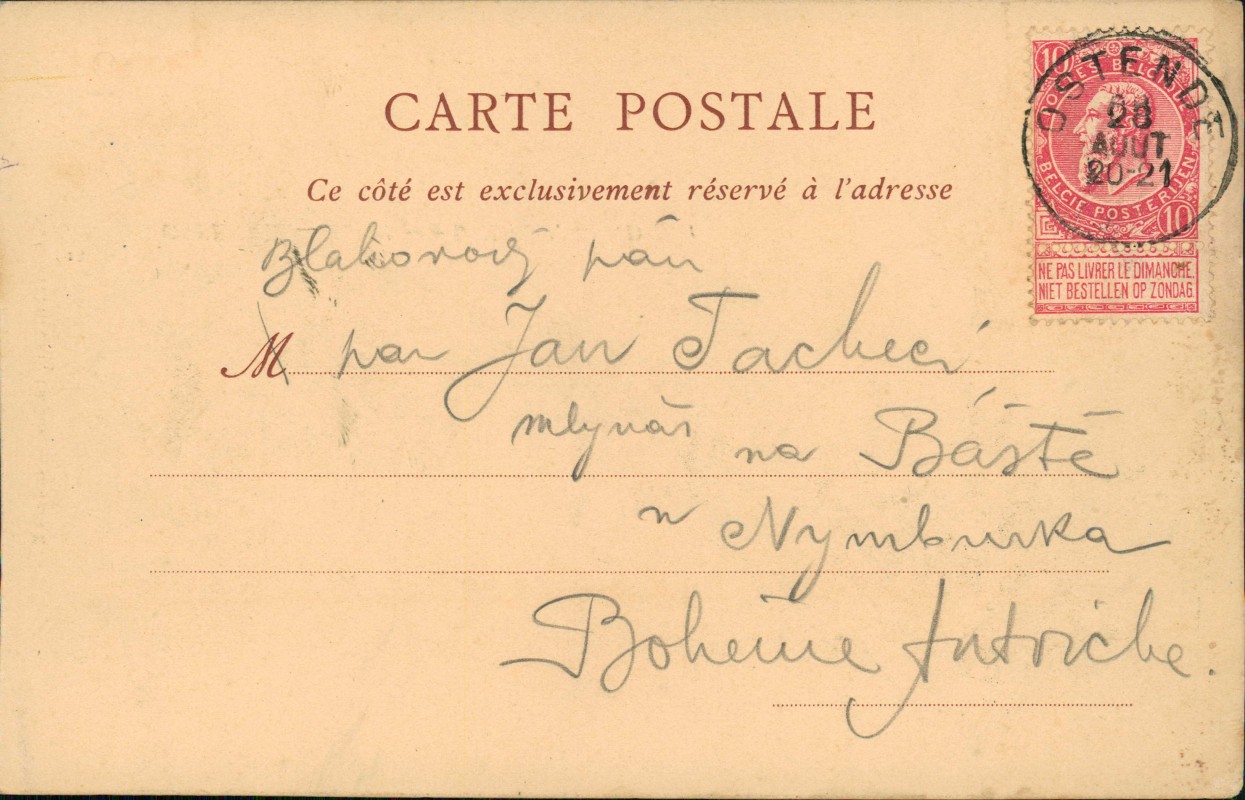 CARTE POSTALE
Ce côté est exclusivement réservé à l'adresse
OSTENDE
28
AOUT
20-21
10
POSTES BELGIQUE
BELGIE POSTERIJEN
10
NE PAS LIVRER LE DIMANCHE.
NIET BESTELLEN OP ZONDAG.
Blahorodý pán
M pan Jan Tachecí
mlynář na Báště
u Nymburka
Boheme Autriche.